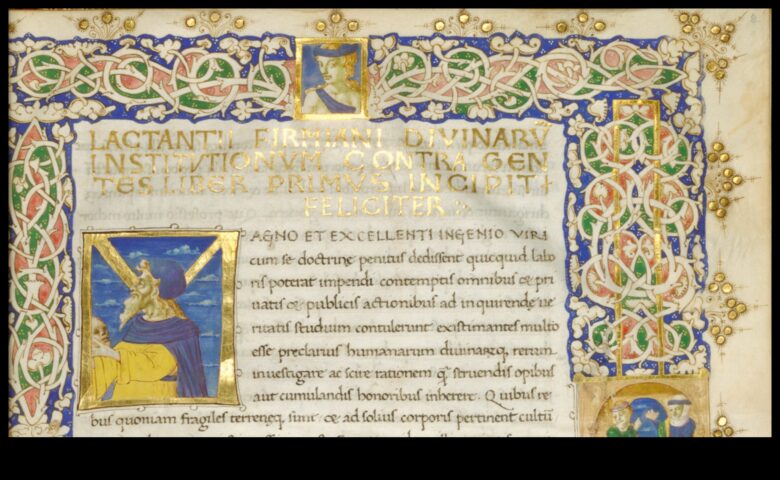 LACTANTII FIRMIANI DIVINARṼ
INSTITVTIONVM CONTRA GEN
TES LIBER PRIMVS INCIPIT
FELICITER
MAGNO ET EXCELLENTI INGENIO VIRI
cum se doctrine penitus dedissent quicquid labo
ris poterat impendi contemptis omnibus & pri
uatis & publicis actionibus ad inquirende ue
ritatis studium contulerunt existimantes multo
esse preclarius humanarum diuinarumq; rerum
inuestigare ac scire rationem q̃ struendis opibus
aut cumulandis honoribus inherere. Quibus re
bus quoniam fragiles terreneq; sunt & ad solius corporis pertinent cultũ